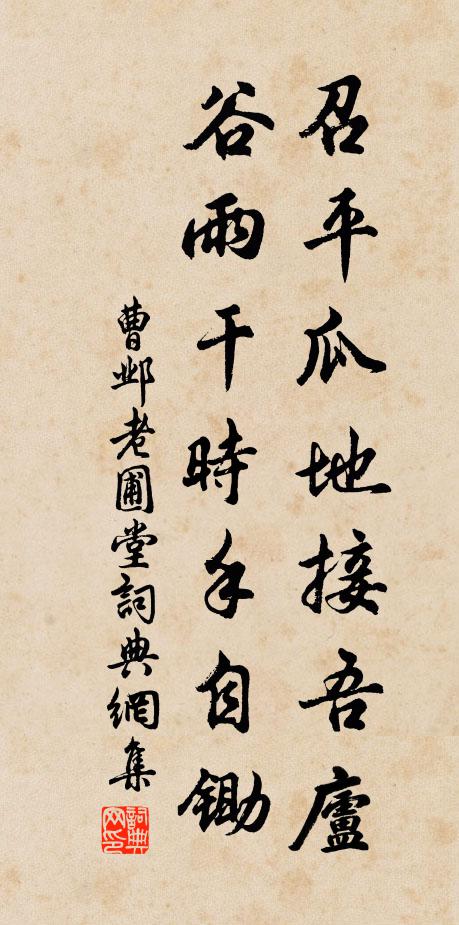 召平瓜地接吾廬
谷雨干時手自鋤
曹邺老圃堂詞典網集
詞典网印